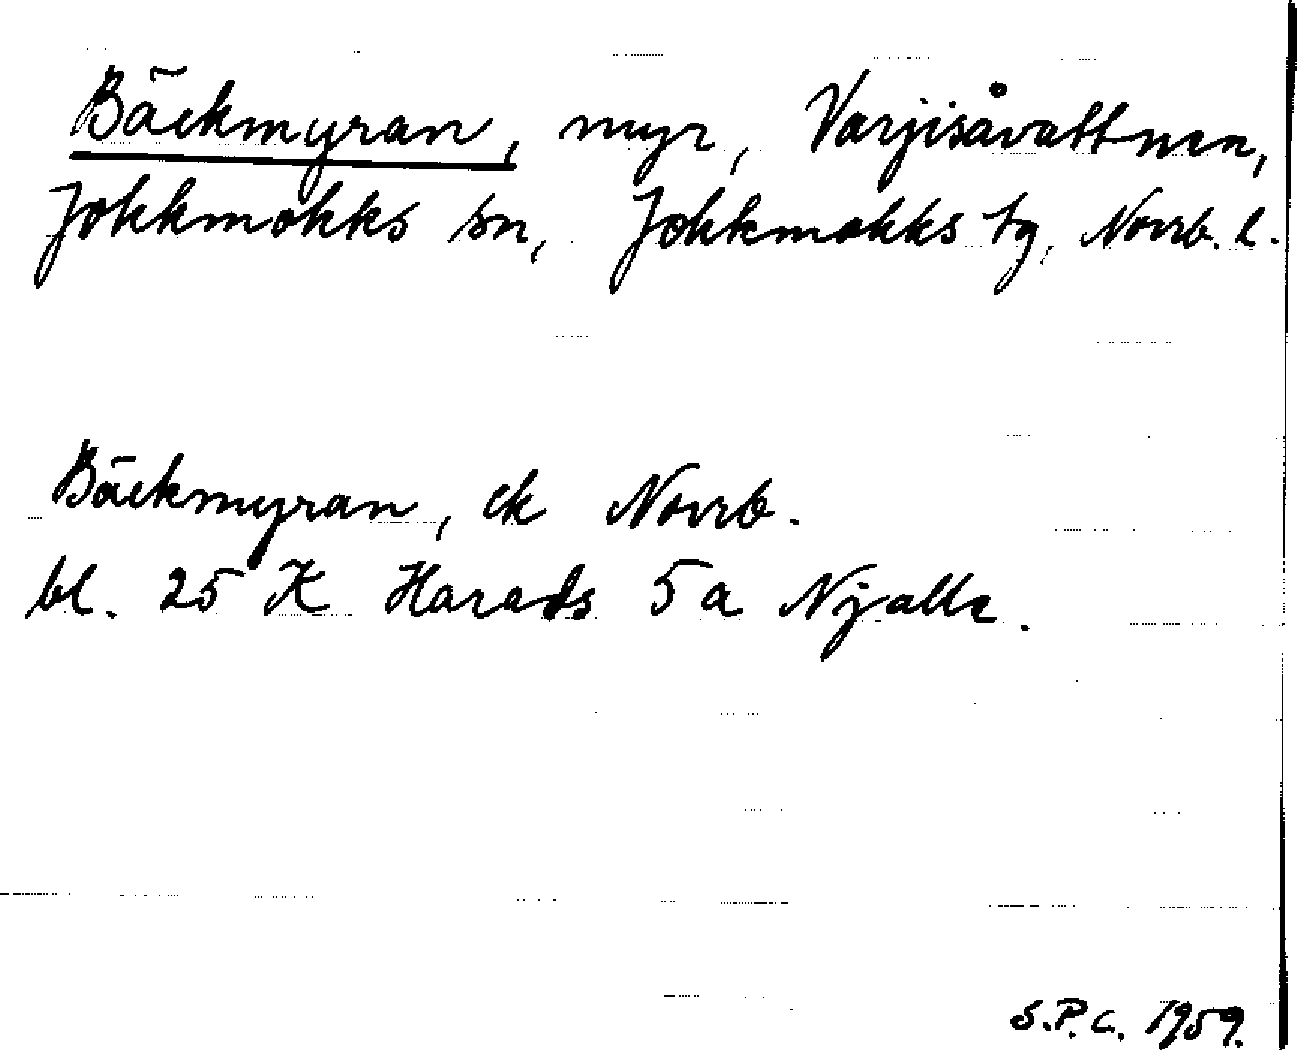 Bäckmyran, myr, Varjisåvattnen,
Jokkmokks sn, Jokkmokks tg, Norrb. l.
Bäckmyran, ek Norrb.
bl. 25 K Harads 5a Njalla.
S.P.C. 1959.